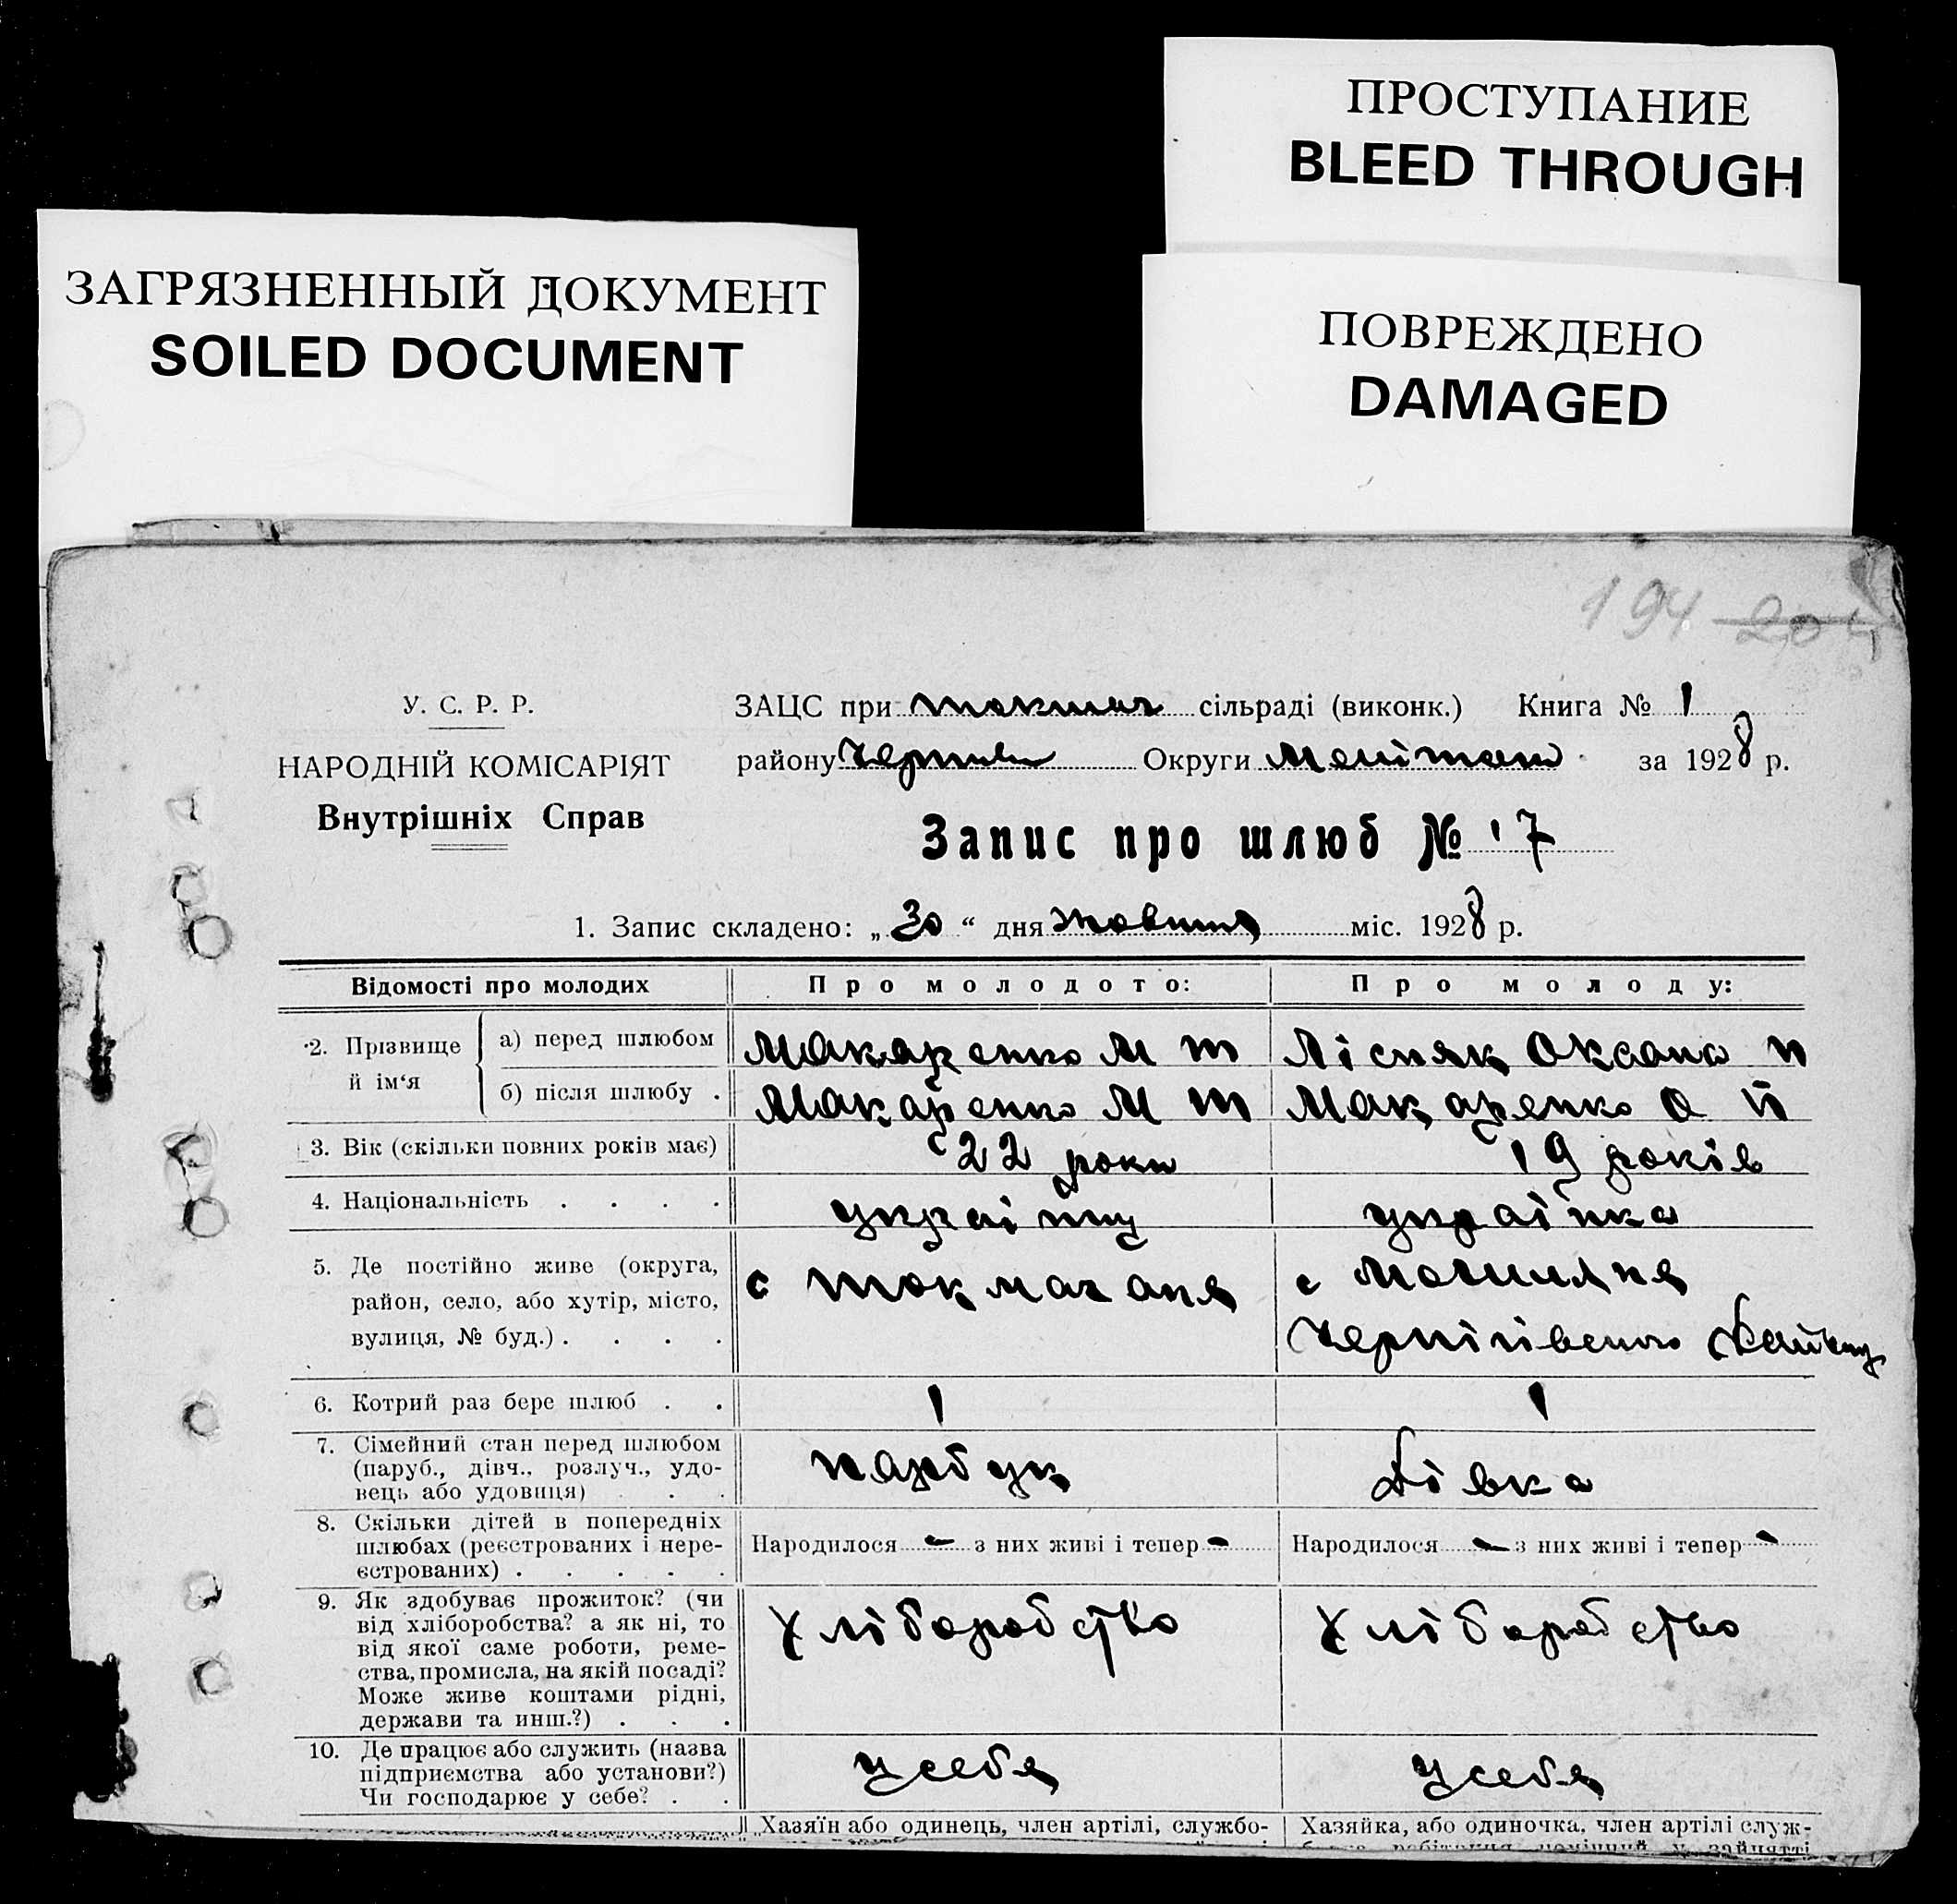 ПРОСТУПАНИЕ
BLEED THROUGH
ЗАГРЯЗНЕННЫЙ ДОКУМЕНТ
SOILED DOCUMENT
ПОВРЕЖДЕНО
DAMAGED
194 204
У. С. Р. Р.
НАРОДНІЙ КОМІСАРІЯТ
Внутрішніх Справ
ЗАЦС при токмач сільраді (виконк.) Книга № 1
району Округи за 1928 р.
Запис про шлюб № 17
1. Запис складено: „30“ дня жовтня міс. 1928 р.
Відомості про молодих
Про молодого:
Про молоду:
2. Прізвище й ім‘я
а) перед шлюбом
Макаренко М т
Лісняк Оксана п
б) після шлюбу .
Макаренко М т
Макаренко О п
3. Вік (скільки повних років має)
22 роки
19 років
4. Національність . . . .
українц
українка
5. Де постійно живе (округа,
район, село, або хутір, місто,
вулиця, № буд.) . . . .
с токмачаня
с могиляня
Чернігівського
6. Котрий раз бере шлюб . .
1
1
7. Сімейний стан перед шлюбом
(паруб., дівч., розлуч., удо-
вець або удовиця) . . .
парбук
Дівка
8. Скільки дітей в попередніх
шлюбах (реєстрованих і нере-
єстрованих) . . . . .
Народилося - з них живі і тепер -
Народилося - з них живі і тепер -
9. Як здобуває прожиток? (чи
від хліборобства? а як ні, то
від якої саме роботи, реме-
ства, промисла, на якій посаді?
Може живе коштами рідні,
держави та инш.?) . . .
Хліборобство
Хліборобство
10. Де працює або служить (назва
підприємства або установи?)
Чи господарює у себе? . .
у себя
у себя
Хазяїн або одинець, член артілі, службо-
Хазяйка, або одиночка, член артілі служ-